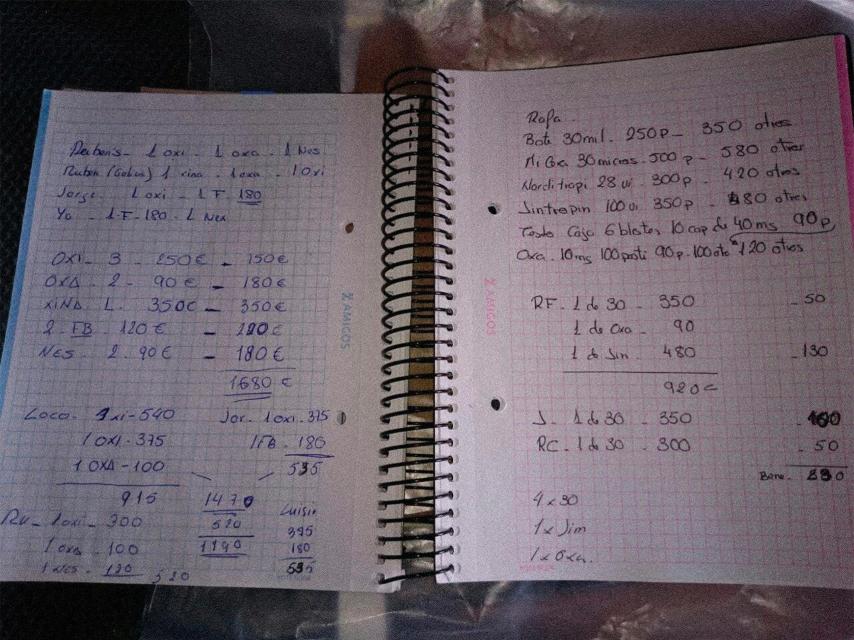 Rubens - 1 oxi - 1 oxa - 1 Nes
Ruben (Golus) 1 xina - 1 oxa - 1 Oxi
Jorge 1 oxi - 1 F. 180
Yo - 1 F - 180 - 1 Nes
OXI - 3 - 250€ - 150€
OXA - 2 - 90€ - 180€
XINA 1. 350€ - 350€
2 - FB - 120€ -
NES - 2. 90€ - 180€
1680 €
Loco - 540
1 OXI - 375
1 OXA - 100
915
Jor - 1 oxi. 375
1 FB - 180
535
1470
520
1190
Luisin
395
180
535
Ru - 1 oxi - 300
1 oxa - 100
1 Nes - 120
520
AMIGOS
Rafa
Bote 30mil. 250p - 350 otres
Mi Ga 30micros - 500p - 580 otres
Norditropi 28 ui - 300p - 420 otres
Sintropin 100 ui 350p - 480 otres
Testo Caja 6 blister 10 cap de 40ms 90p
Oxa. 10ms 100pasti 90p. 100ote 120 otres
RF - 1 de 30 - 350 - 50
1 de Oxa - 90
1 de Sin - 480 - 130
920€
J - 1 de 30 - 350
RC - 1 de 30 - 300 - 50
Bene.
4 x 30
1 x Sim
1 x Oxa.
AMIGOS